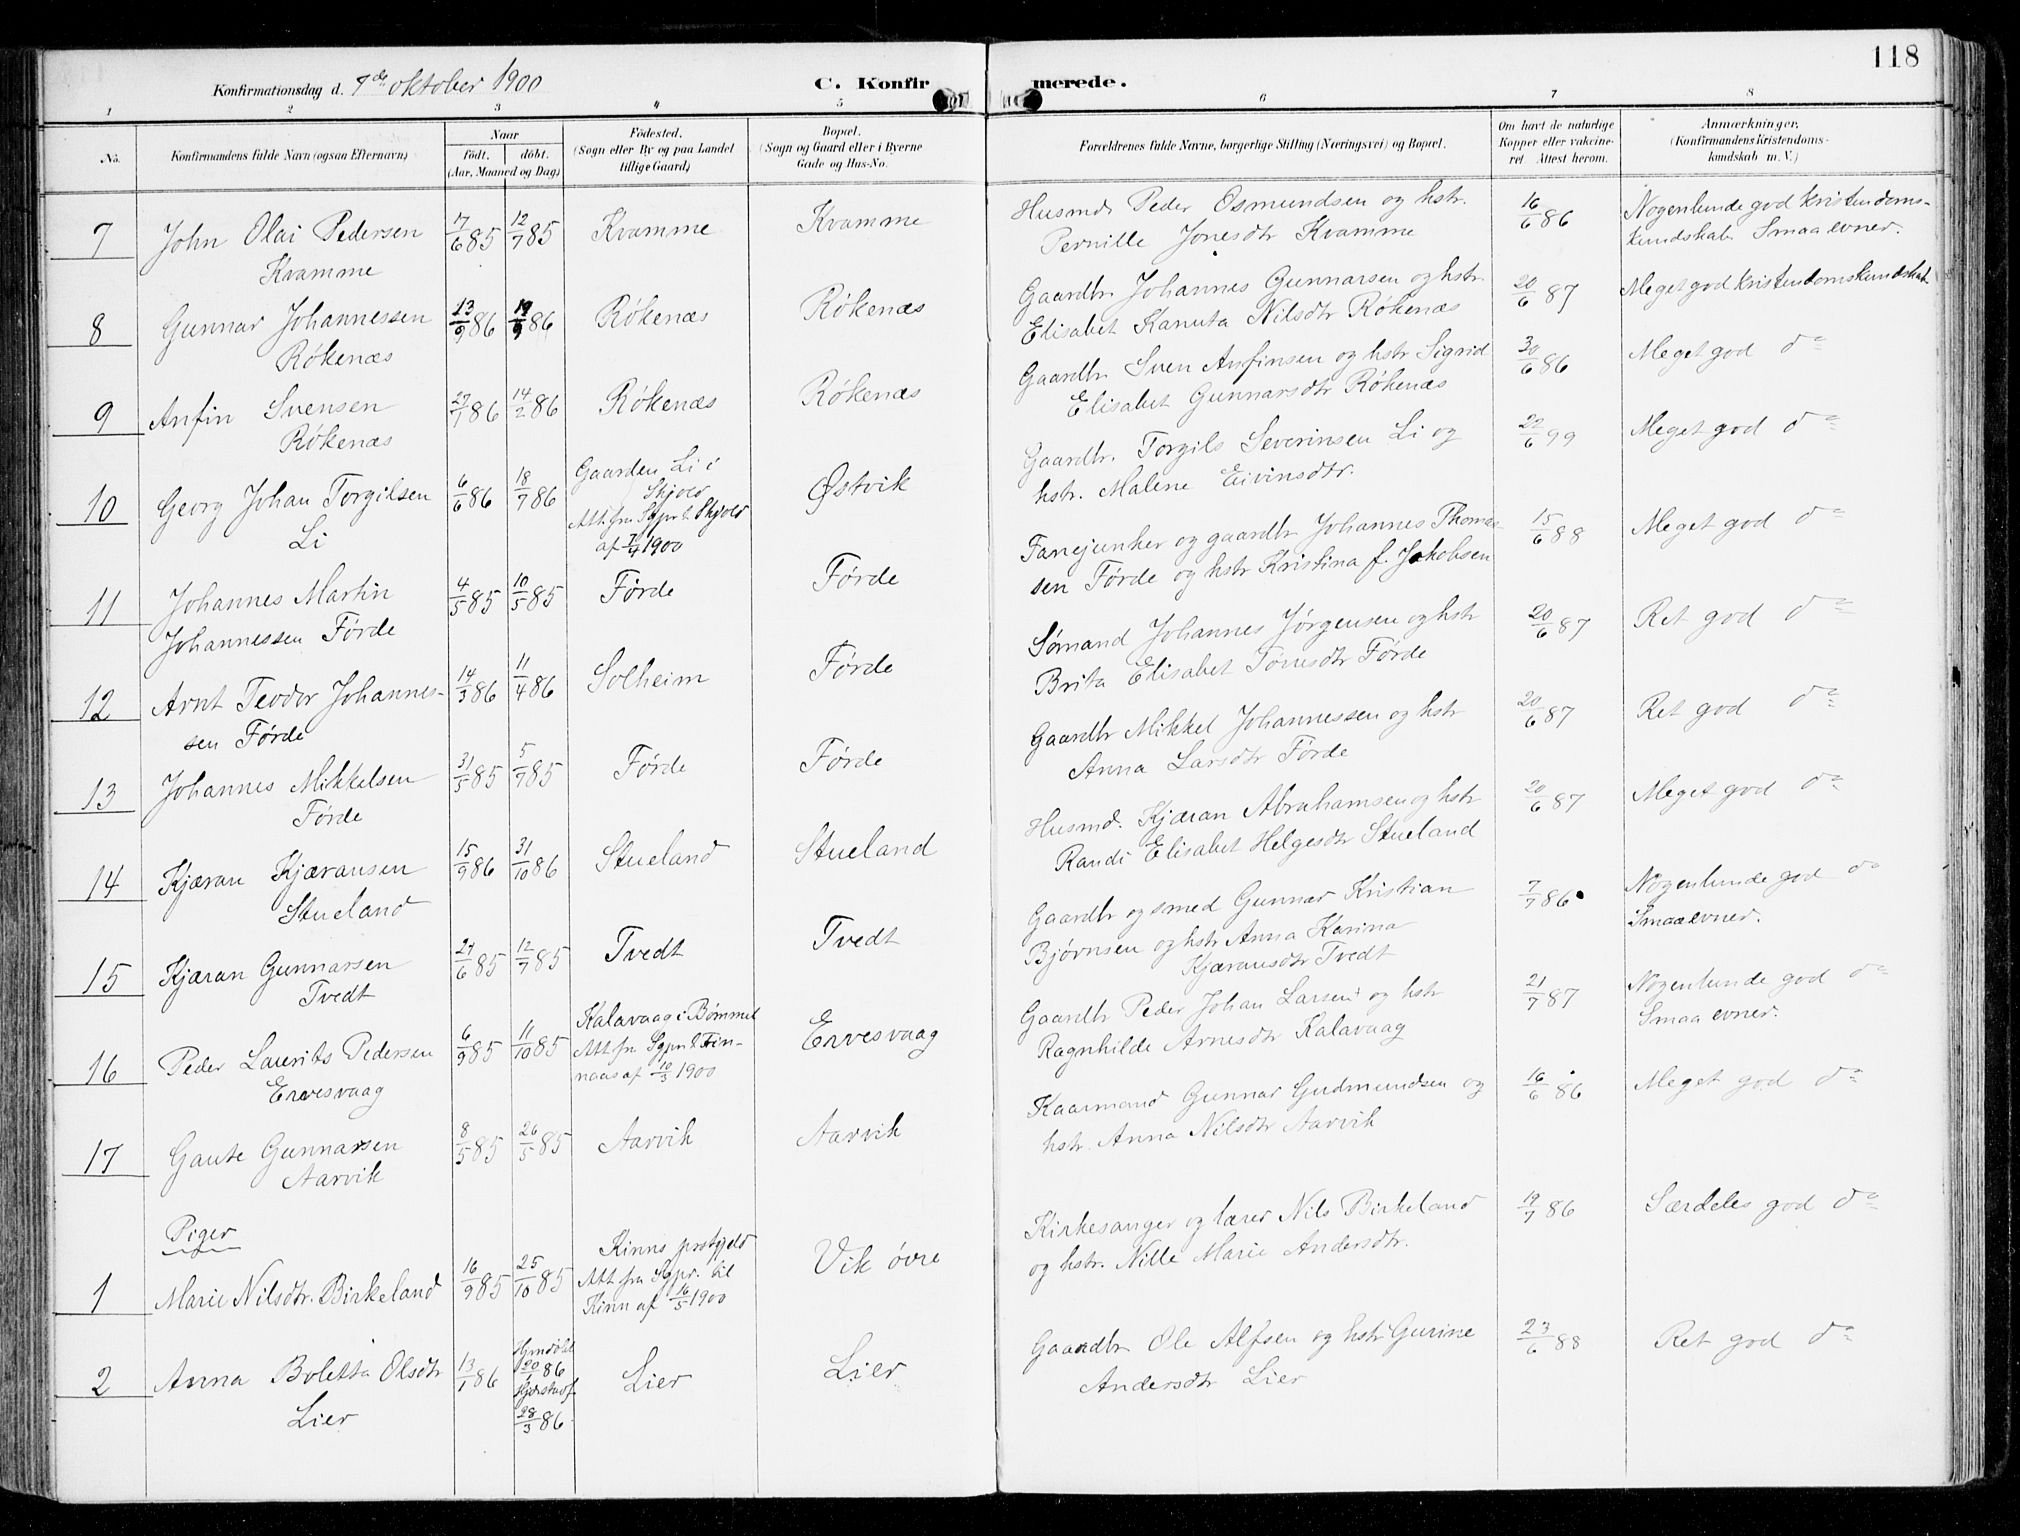 118
Konfirmationsdag d. 7de oktober 1900
C. Konfirmerede.
1 2 3 4 5 6 7 8
No. Konfirmandens fulde Navn (ogsaa Efternavn) Naar födt. döbt. (Aar, Maaned og Dag) Födested. (Sogn eller By og paa Landet tillige Gaard) Bopæl. (Sogn og Gaard eller i Byerne Gade og Hus-No. Forældrenes fulde Navne, borgerlige Stilling (Næringsvei) og Bopæl. Om havt de naturlige Kopper eller vaccineret. Attest herom. Anmærkninger. (Konfirmandens Kristendomskundskab m. V.)
7 John Olai Pedersen Kvamme 7/6 85 12/7 85 Kvamme Kvamme Husmd Peder Osmundsen og hstr. Pernille Jonesdtr Kvamme 16/6 86 Nogenlunde god kristendomskundskab. Smaa evner.
8 Gunnar Johannessen Rökenæs 13/9 86 19/9 86 Rökenæs Rökenæs Gaardbr Johannes Gunnarsen og hstr. Elisabet Kanuta Nilsdtr Rökenæs 20/6 87 Meget god kristendomskundskab
9 Anfin Svensen Rökenæs 27/1 86 14/2 86 Rökenæs Rökenæs Gaardbr Sven Anfinsen og hstr Sigrid Elisabet Gunnarsdtr Rökenæs 30/6 86 Meget god do
10 Georg Johan Torgilsen Li 6/6 86 18/7 86 Gaarden Li i Skjold Att. fra Sgpr t. Skjold af 7/4 1900 Østvik Gaardbr. Torgils Severinsen Li og hstr. Malene Eivinsdtr. 22/6 99 Meget god do
11 Johannes Martin Johannessen Førde 4/5 85 10/5 85 Førde Førde Fanejunker og gaardbr Johannes Thomassen Førde og hstr Kristina f. Jakobsen 15/6 88 Meget god do
12 Arnt Teodor Johannessen Førde 14/3 86 11/4 86 Solheim Førde Sømand Johannes Jørgensen og hstr Brita Elisabet Tønnesdtr Førde 20/6 87 Ret god do
13 Johannes Mikkelsen Førde 31/5 85 5/7 85 Førde Førde Gaardbr Mikkel Johannessen og hstr Anna Larsdtr Førde 20/6 87 Ret god do
14 Kjæran Kjæransen Stueland 15/9 86 31/10 86 Stueland Stueland Husmd. Kjæran Abrahamsen og hstr Randi Elisabet Helgesdtr Stueland 20/6 87 Meget god do
15 Kjæran Gunnarsen Tvedt 21/6 85 12/7 85 Tvedt Tvedt Gaardbr og smed Gunnar Kristian Bjørnsen og hstr Anna Karina Kjæransdtr Tvedt 7/7 86 Nogenlunde god do Smaa evner.
16 Peder Laurits Pedersen Ervesvaag 6/9 85 11/10 85 Kalavaag i Bømmel Att fra Sgpr t. Finnaas af 10/3 1900 Ervesvaag Gaardbr Peder Johan Larsen og hstr Ragnhilde Arnesdtr Kalavaag 21/7 87 Nogenlunde god do Smaa evner.
17 Gaute Gunnarsen Aarvik 8/5 85 26/5 85 Aarvik Aarvik Kaarmand Gunnar Gudmundsen og hstr. Anna Nilsdtr Aarvik 16/6 86 Meget god do
Piger
1 Marie Nilsdtr. Birkeland 16/9 85 25/10 85 Kinns prstgjeld Att fra Sgpr. til Kinn af 16/5 1900 Vik øvre Kirkesanger og lærer Nils Birkeland og hstr. Nille Marie Andersdtr. 19/7 86 Særdeles god do
2 Anna Boletta Olsdtr Lier 13/1 86 Hjmdöbt 20/1 86 28/3 86 Lier Lier Gaardbr Ole Alfsen og hstr Gurine Andersdtr Lier 23/6 88 Ret god do